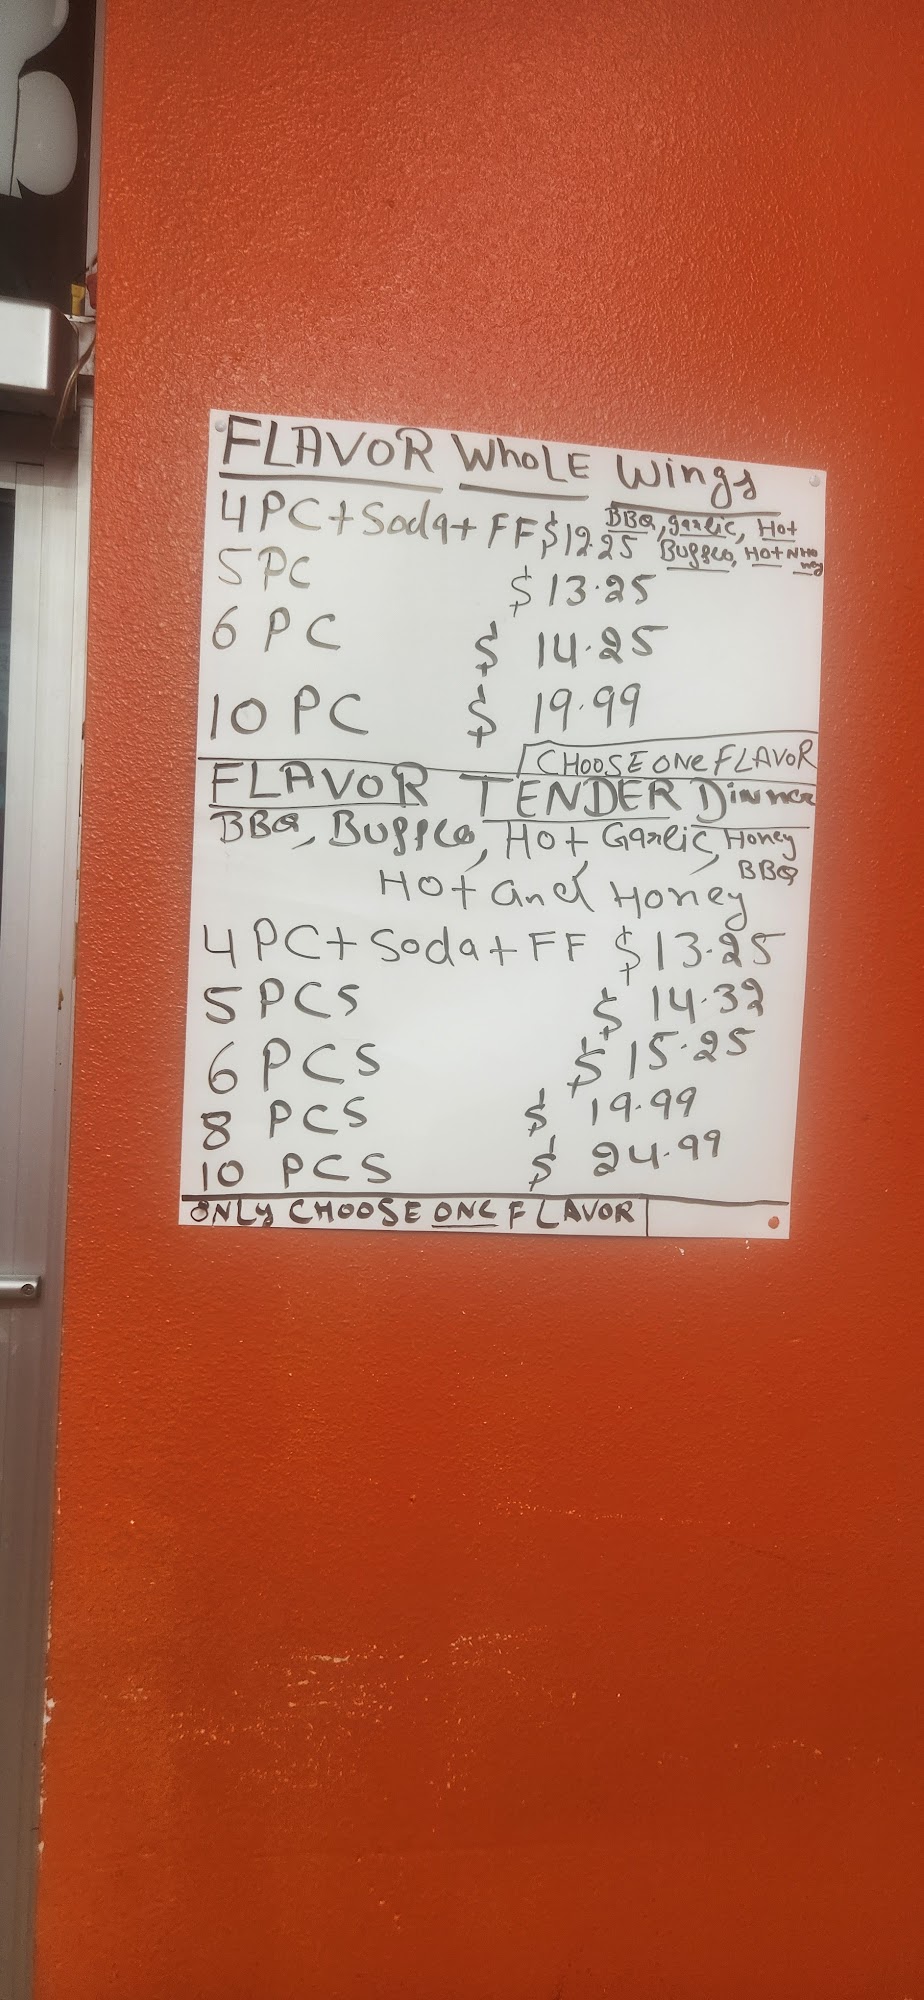 FLAVOR WhOLE Wings
4PC+Soda+FF $12.25 BBQ, garlic, Hot
Buffco, HOT N HO
ney
5PC $13.25
6 PC $ 14.25
10 PC $ 19.99
CHOOSE ONE FLAVOR
FLAVOR TENDER Dinner
BBQ, Buffco, HOt, Garlic, Honey
BBQ
HOt and Honey
4PC+ Soda+FF $13.25
5 PCS $ 14.32
6 PCS $ 15.25
8 PCS $ 19.99
10 PCS $ 24.99
ONLY CHOOSE ONE FLAVOR